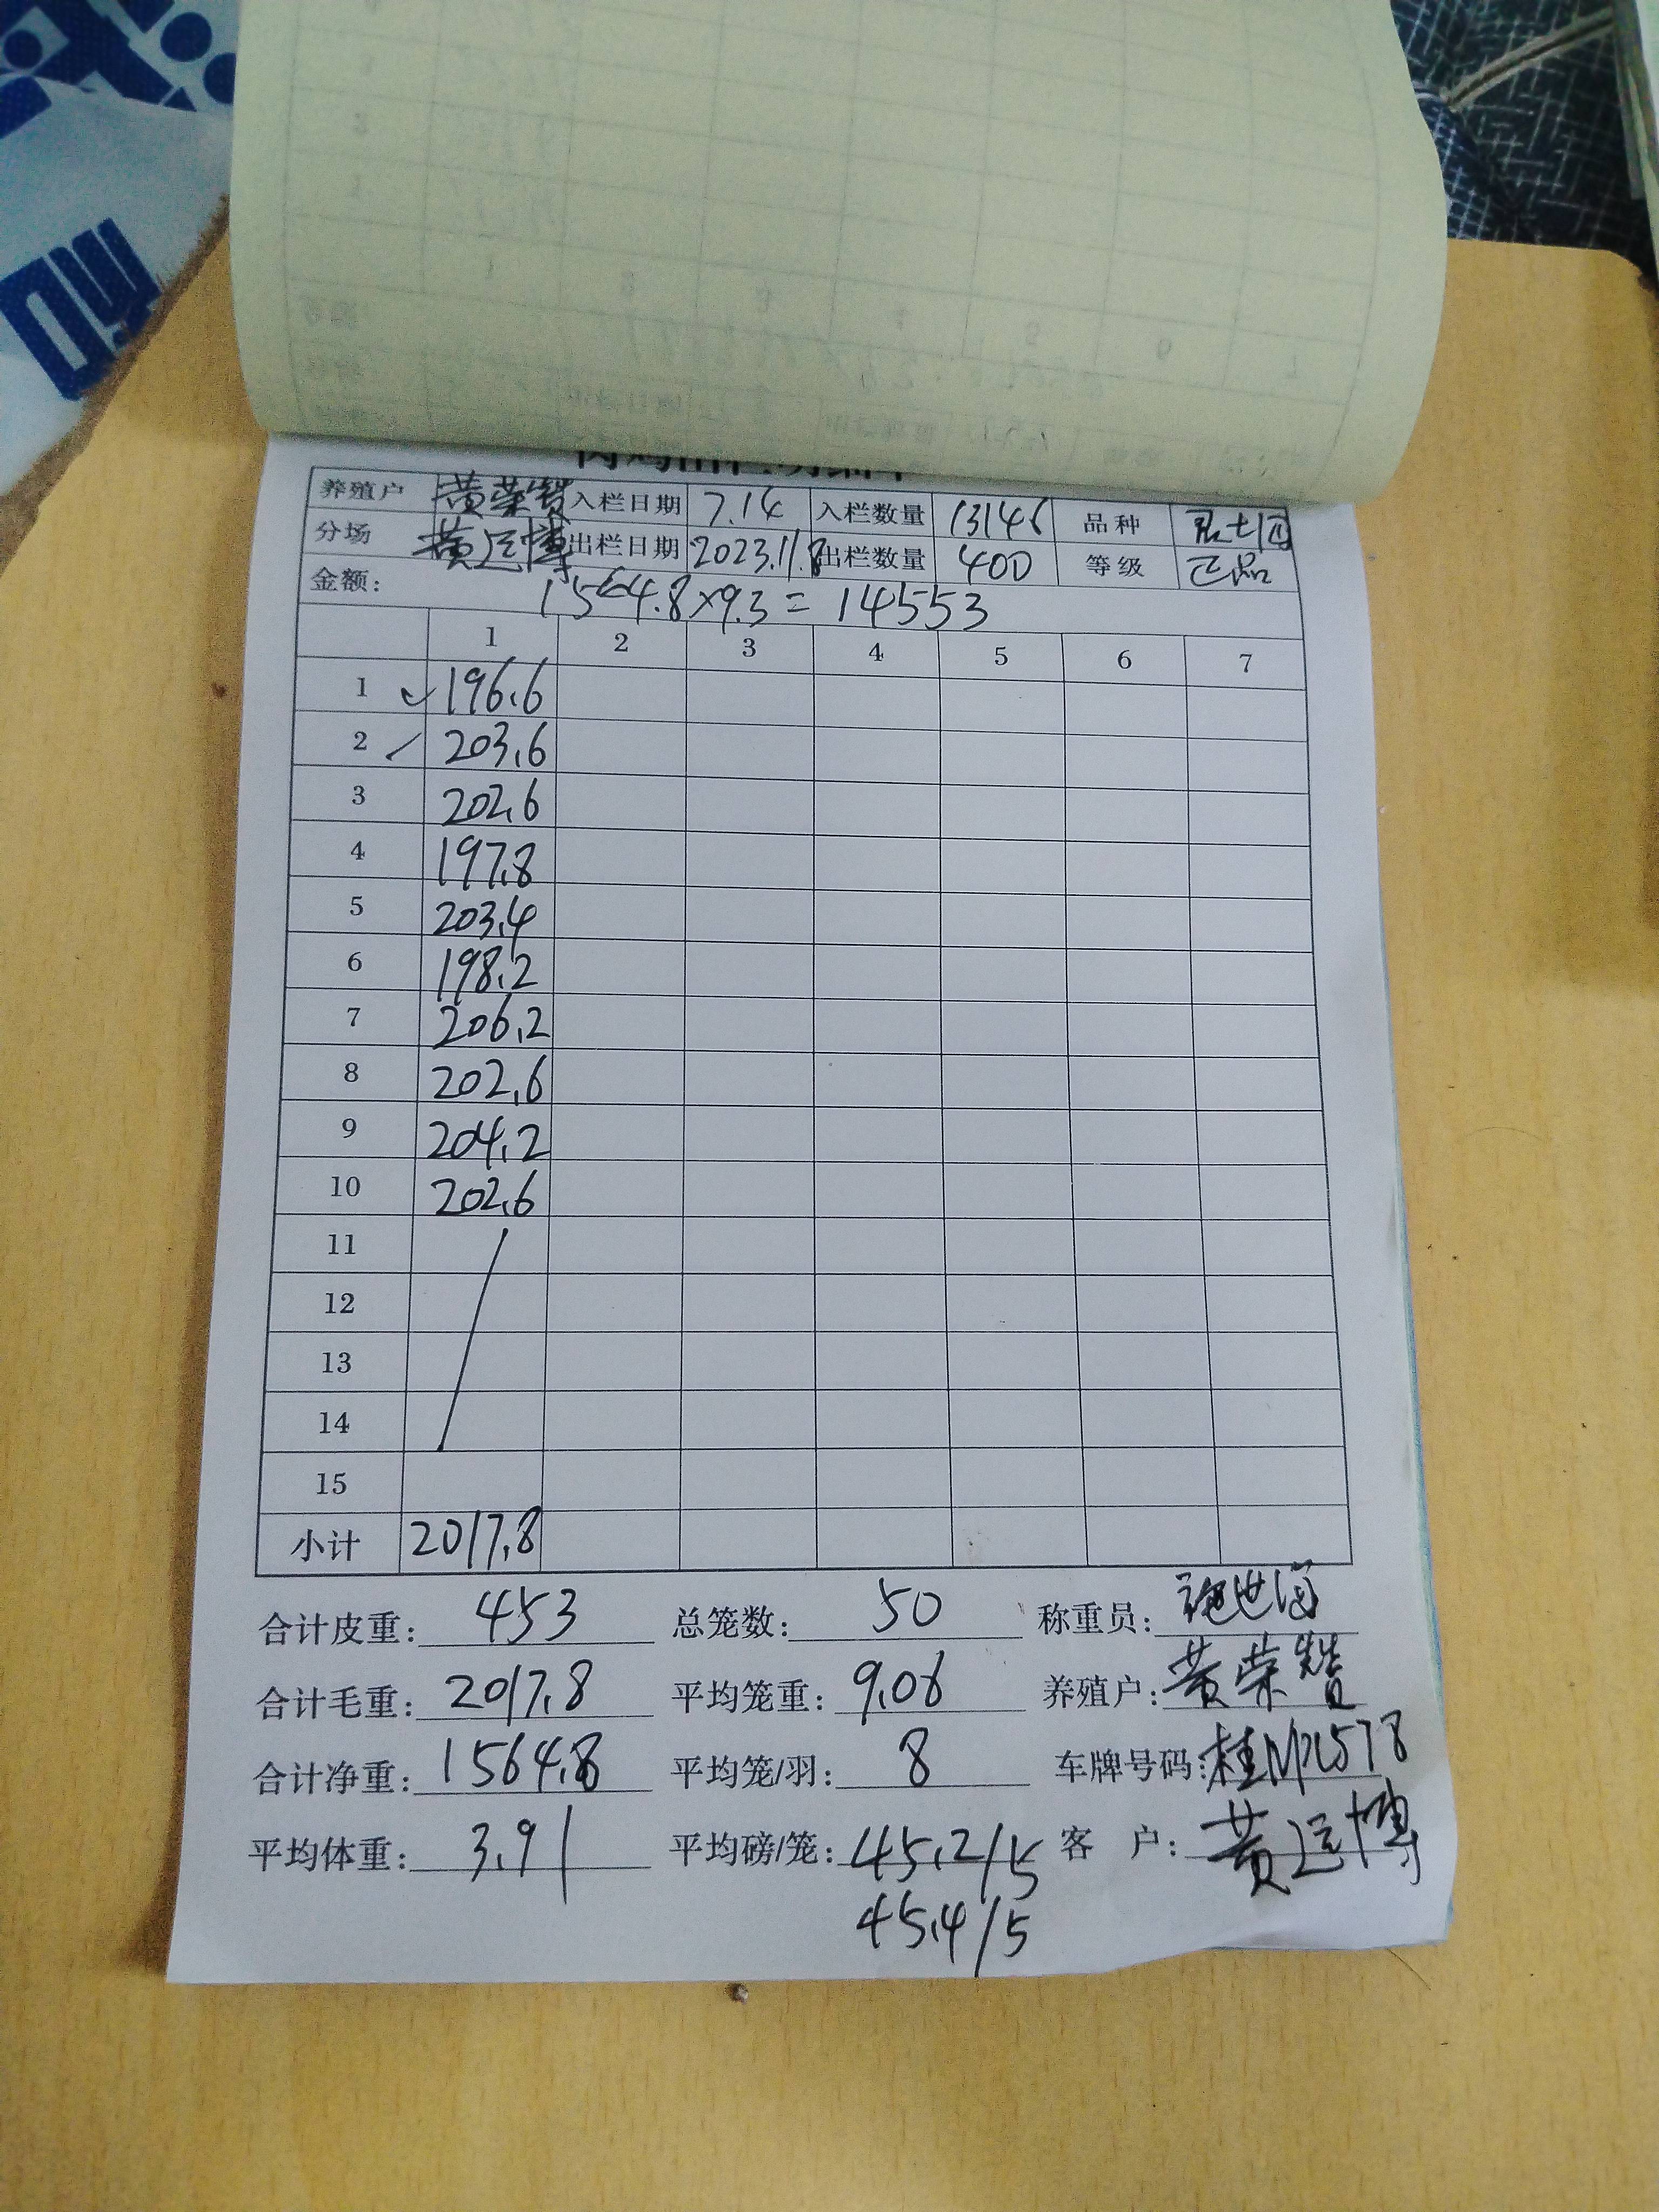 养殖户 黄荣赞 入栏日期 7.14 入栏数量 13146 品种
分场 黄运博 出栏日期 2023.11.8 出栏数量 400 等级 正品
金额: 1564.8×9.3=14553
1 2 3 4 5 6 7
1 196.6
2 203.6
3 202.6
4 197.8
5 203.4
6 198.2
7 206.2
8 202.6
9 204.2
10 202.6
11
12
13
14
15
小计 2017.8
合计皮重: 453 总笼数: 50 称重员:
合计毛重: 2017.8 平均笼重: 9.06 养殖户: 黄荣赞
合计净重: 1564.8 平均笼/羽: 8 车牌号码:
平均体重: 3.91 平均磅/笼: 45.2/5 客户: 黄运博
45.4/5